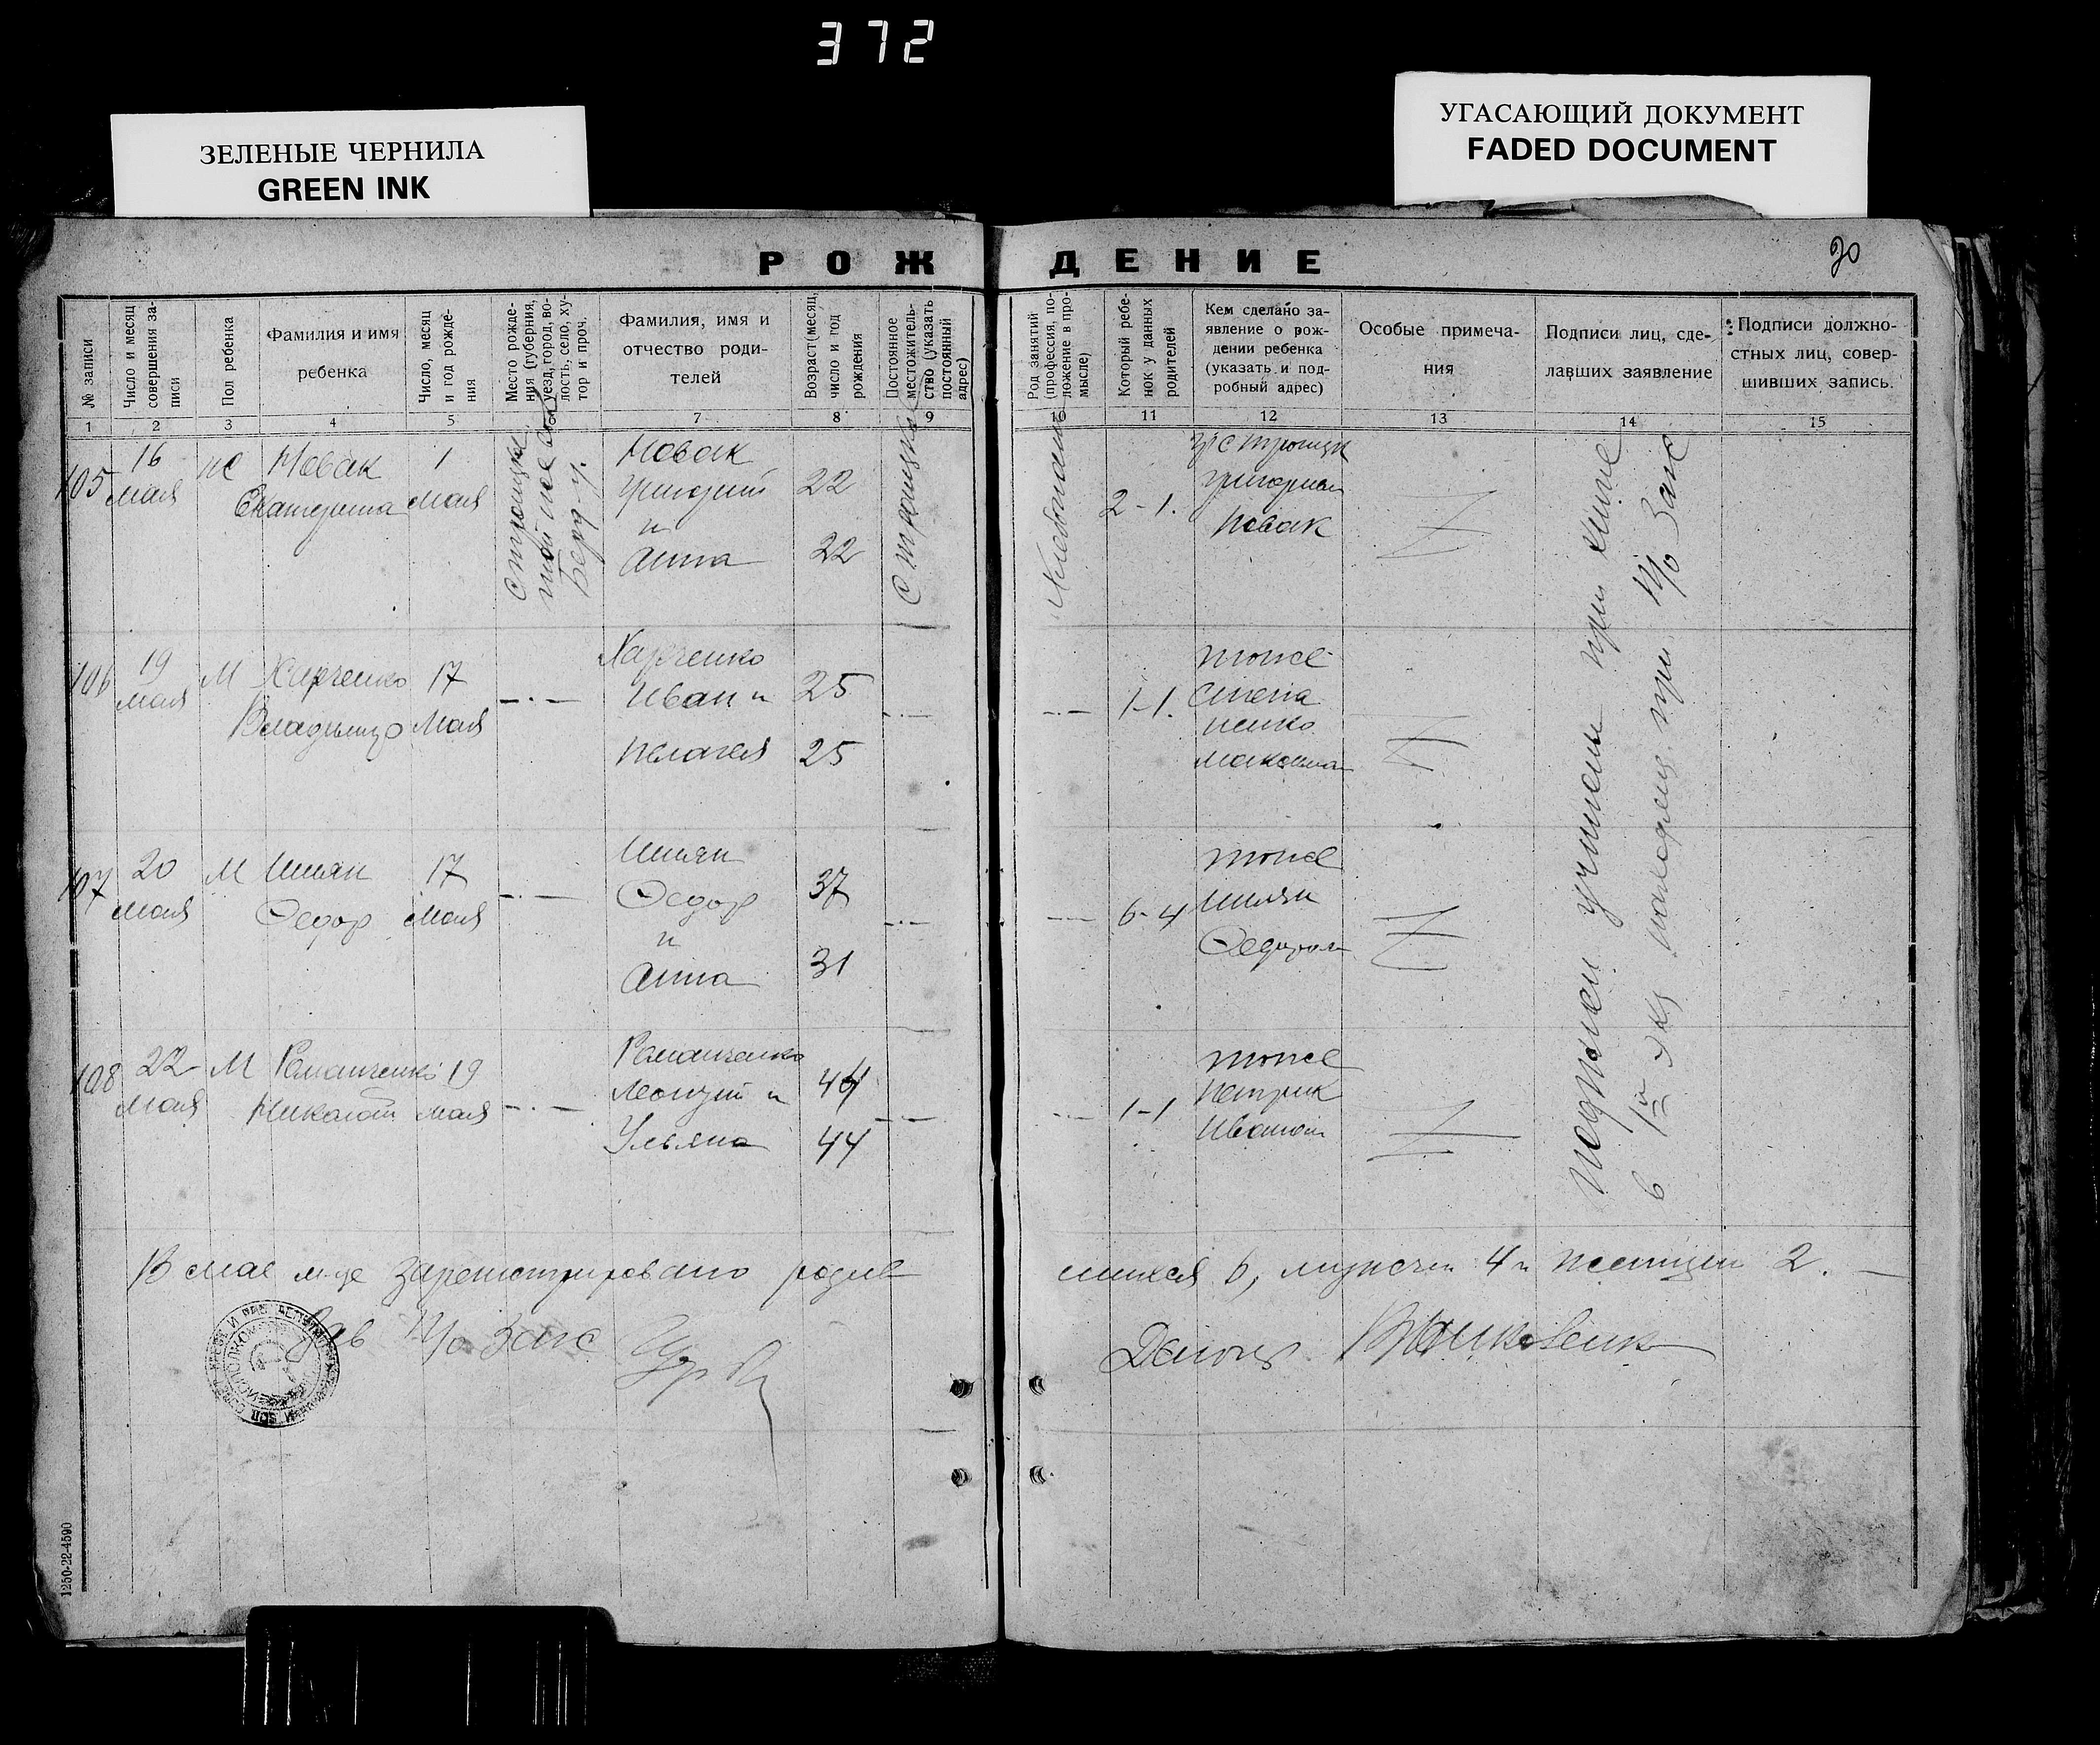 372
ЗЕЛЕНЫЕ ЧЕРНИЛА
GREEN INK
УГАСАЮЩИЙ ДОКУМЕНТ
FADED DOCUMENT
РОЖДЕНИЕ
№ записи
Число и месяц
совершения за-
писи
Пол ребенка
Фамилия и имя
ребенка
Число, месяц
и год рожде-
ния
Место рожде-
ния (губерния,
уезд, город, во-
лость, село, ху-
тор и проч.
Фамилия, имя и
отчество роди-
телей
Возраст (месяц,
число и год
рождения
Постоянное
местожитель-
ство (указать
постоянный
адрес)
Род занятий
(профессия, по-
ложение в про-
мысле)
Который ребе-
нок у данных
родителей
Кем сделано за-
явление о рож-
дении ребенка
(указать и под-
робный адрес)
Особые примеча-
ния
Подписи лиц, сде-
лавших заявление
Подписи должно-
стных лиц, совер-
шивших запись.
1 2 3 4 5 7 8 9 10 11 12 13 14 15
105
16
мая
Новак
Екатерина
1
мая
Новак
Григорий
и
Анна
22
22
2-1.
Григорием
Новак
106
19
мая
М
Харченко
Владимир
17
мая
Харченко
Иван и
Пелагея
25
25
1-1.
тоже
107
20
мая
М
Шиян
Федор
17
мая
Шиян
Федор
и
Анна
37
31
6-4
тоже
Шиян
Федором
108
22
мая
М
Романченко
Николай
19
мая
Романченко
Леонтий и
Ульяна
44
44
1-1
тоже
Петрик
Иваном
Подписи учинены при книге
В мае м-це зарегистрировано родив
шихся 6, мужчин 4 и женщин 2.
Зав П/о Загс
Делопр
1250-22-4590